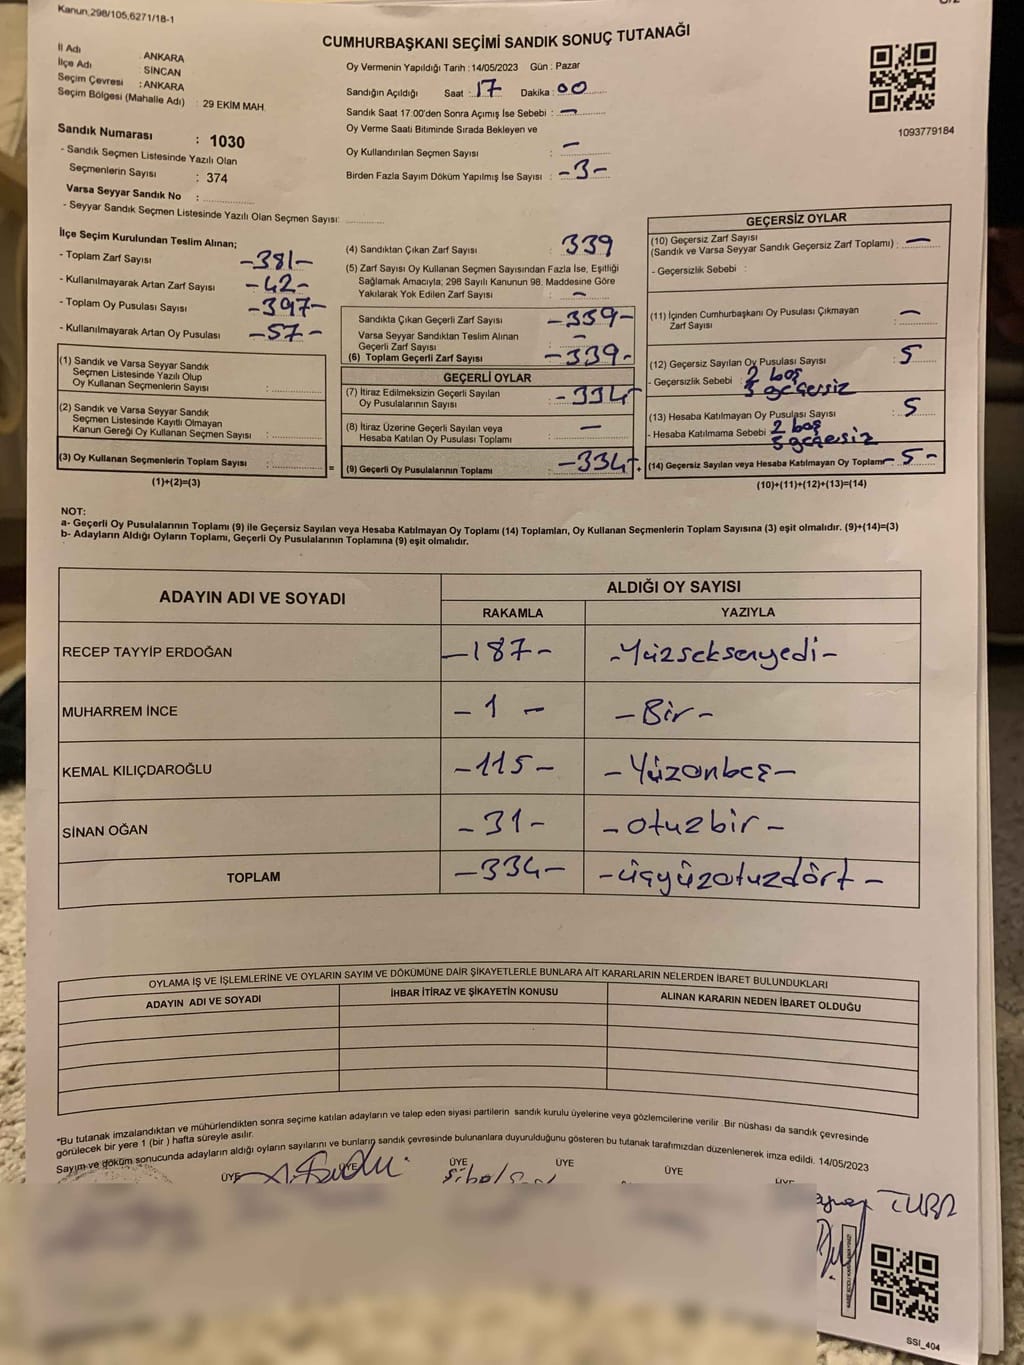 Kanun;298/105,6271/18-1
CUMHURBAŞKANI SEÇİMİ SANDIK SONUÇ TUTANAĞI
İl Adı : ANKARA
İlçe Adı : SİNCAN
Seçim Çevresi : ANKARA
Seçim Bölgesi (Mahalle Adı) : 29 EKİM MAH.
Sandık Numarası : 1030
- Sandık Seçmen Listesinde Yazılı Olan
Seçmenlerin Sayısı : 374
Varsa Seyyar Sandık No :
- Seyyar Sandık Seçmen Listesinde Yazılı Olan Seçmen Sayısı:
Oy Vermenin Yapıldığı Tarih : 14/05/2023 Gün : Pazar
Sandığın Açıldığı Saat : 17 Dakika : 00
Sandık Saat 17:00'den Sonra Açımış İse Sebebi : -
Oy Verme Saati Bitiminde Sırada Bekleyen ve
Oy Kullandırılan Seçmen Sayısı : -
Birden Fazla Sayım Döküm Yapılmış İse Sayısı : -3-
1093779184
İlçe Seçim Kurulundan Teslim Alınan;
- Toplam Zarf Sayısı -381-
- Kullanılmayarak Artan Zarf Sayısı -42-
- Toplam Oy Pusulası Sayısı -397-
- Kullanılmayarak Artan Oy Pusulası -57-
(1) Sandık ve Varsa Seyyar Sandık
Seçmen Listesinde Yazılı Olup
Oy Kullanan Seçmenlerin Sayısı :
(2) Sandık ve Varsa Seyyar Sandık
Seçmen Listesinde Kayıtlı Olmayan
Kanun Gereği Oy Kullanan Seçmen Sayısı :
(3) Oy Kullanan Seçmenlerin Toplam Sayısı : =
(1)+(2)=(3)
(4) Sandıktan Çıkan Zarf Sayısı : 339
(5) Zarf Sayısı Oy Kullanan Seçmen Sayısından Fazla İse, Eşitliği
Sağlamak Amacıyla; 298 Sayılı Kanunun 98. Maddesine Göre
Yakılarak Yok Edilen Zarf Sayısı : -
Sandıkta Çıkan Geçerli Zarf Sayısı -339-
Varsa Seyyar Sandıktan Teslim Alınan
Geçerli Zarf Sayısı : -
(6) Toplam Geçerli Zarf Sayısı -339-
GEÇERLİ OYLAR
(7) İtiraz Edilmeksizin Geçerli Sayılan
Oy Pusulalarının Sayısı : -334-
(8) İtiraz Üzerine Geçerli Sayılan veya
Hesaba Katılan Oy Pusulası Toplamı : -
(9) Geçerli Oy Pusulalarının Toplamı : -334- +
GEÇERSİZ OYLAR
(10) Geçersiz Zarf Sayısı
(Sandık ve Varsa Seyyar Sandık Geçersiz Zarf Toplamı) : -
- Geçersizlik Sebebi :
(11) İçinden Cumhurbaşkanı Oy Pusulası Çıkmayan
Zarf Sayısı : -
(12) Geçersiz Sayılan Oy Pusulası Sayısı : 5
- Geçersizlik Sebebi : 2 boş
geçersiz
(13) Hesaba Katılmayan Oy Pusulası Sayısı : 5
- Hesaba Katılmama Sebebi : 2 boş
3 geçersiz
(14) Geçersiz Sayılan veya Hesaba Katılmayan Oy Toplamı -5-
(10)+(11)+(12)+(13)=(14)
NOT:
a- Geçerli Oy Pusulalarının Toplamı (9) ile Geçersiz Sayılan veya Hesaba Katılmayan Oy Toplamı (14) Toplamları, Oy Kullanan Seçmenlerin Toplam Sayısına (3) eşit olmalıdır. (9)+(14)=(3)
b- Adayların Aldığı Oyların Toplamı, Geçerli Oy Pusulalarının Toplamına (9) eşit olmalıdır.
ADAYIN ADI VE SOYADI ALDIĞI OY SAYISI
RAKAMLA YAZIYLA
RECEP TAYYİP ERDOĞAN -187- -Yüzseksenyedi-
MUHARREM İNCE -1- -Bir-
KEMAL KILIÇDAROĞLU -115- -Yüzonbeş-
SİNAN OĞAN -31- -otuzbir-
TOPLAM -334- -üçyüzotuzdört-
OYLAMA İŞ VE İŞLEMLERİNE VE OYLARIN SAYIM VE DÖKÜMÜNE DAİR ŞİKAYETLERLE BUNLARA AİT KARARLARIN NELERDEN İBARET BULUNDUKLARI
ADAYIN ADI VE SOYADI İHBAR İTİRAZ VE ŞİKAYETİN KONUSU ALINAN KARARIN NEDEN İBARET OLDUĞU
*Bu tutanak imzalandıktan ve mühürlendikten sonra seçime katılan adayların ve talep eden siyasi partilerin sandık kurulu üyelerine veya gözlemcilerine verilir. Bir nüshası da sandık çevresinde
görülecek bir yere 1 (bir) hafta süreyle asılır.
Sayım ve döküm sonucunda adayların aldığı oyların sayılarını ve bunların sandık çevresinde bulunanlara duyurulduğunu gösteren bu tutanak tarafımızdan düzenlenerek imza edildi. 14/05/2023
ÜYE ÜYE ÜYE ÜYE ÜYE
SSI_404